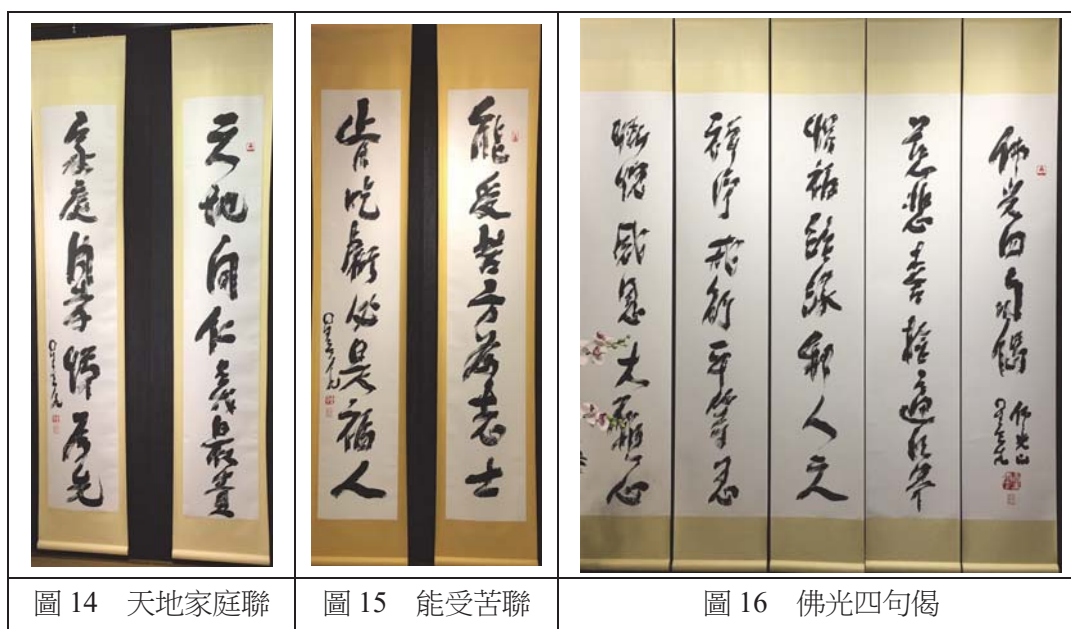 天地 仁義最貴
家庭 孝悌為先
星雲
能受苦方為志士
肯吃虧必是福人
星雲
佛光四句偈
佛光山
星雲
慈悲喜捨遍法界
惜福結緣利人天
禪淨戒行平等忍
慚愧感恩大願心
圖 14 天地家庭聯
圖 15 能受苦聯
圖 16 佛光四句偈